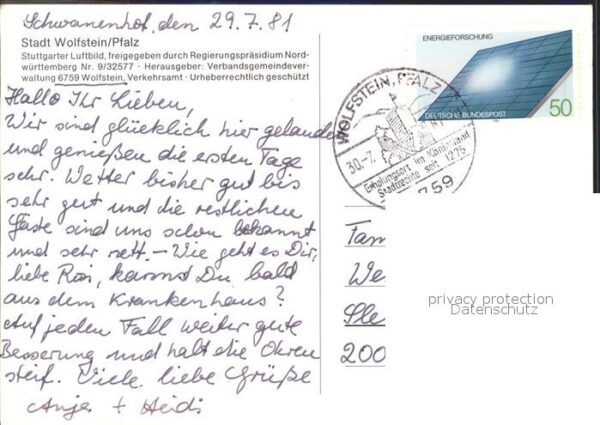 Schwanenhof, den 29.7.81
Stadt Wolfstein/Pfalz
Stuttgarter Luftbild, freigegeben durch Regierungspräsidium Nord-
württemberg Nr. 9/32577 · Herausgeber: Verbandsgemeindever-
waltung 6759 Wolfstein, Verkehrsamt · Urheberrechtlich geschützt
Hallo Ihr Lieben,
Wir sind glücklich hier gelandet
und genießen die ersten Tage
sehr. Wetter bisher gut bis
sehr gut und die restlichen
Gäste sind uns schon bekannt
und sehr nett. – Wie geht es Dir,
liebe Rosi, kannst Du bald
aus dem Krankenhaus?
Auf jeden Fall weiter gute
Besserung und halt die Ohren
steif. Viele liebe Grüße
Anja + Heidi
ENERGIEFORSCHUNG
DEUTSCHE BUNDESPOST
50
WOLFSTEIN, PFALZ
30.-7.
Erholungsort im Königsland
Stadtrechte seit 1275
759
Fam
We
Sle
200
privacy protection
Datenschutz